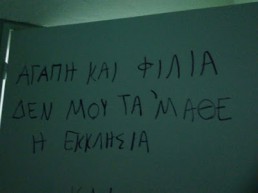 ΑΓΑΠΗ ΚΑΙ ΦΙΛΙΑ
ΔΕΝ ΜΟΥ ΤΑ 'ΜΑΘΕ
Η ΕΚΚΛΗΣΙΑ